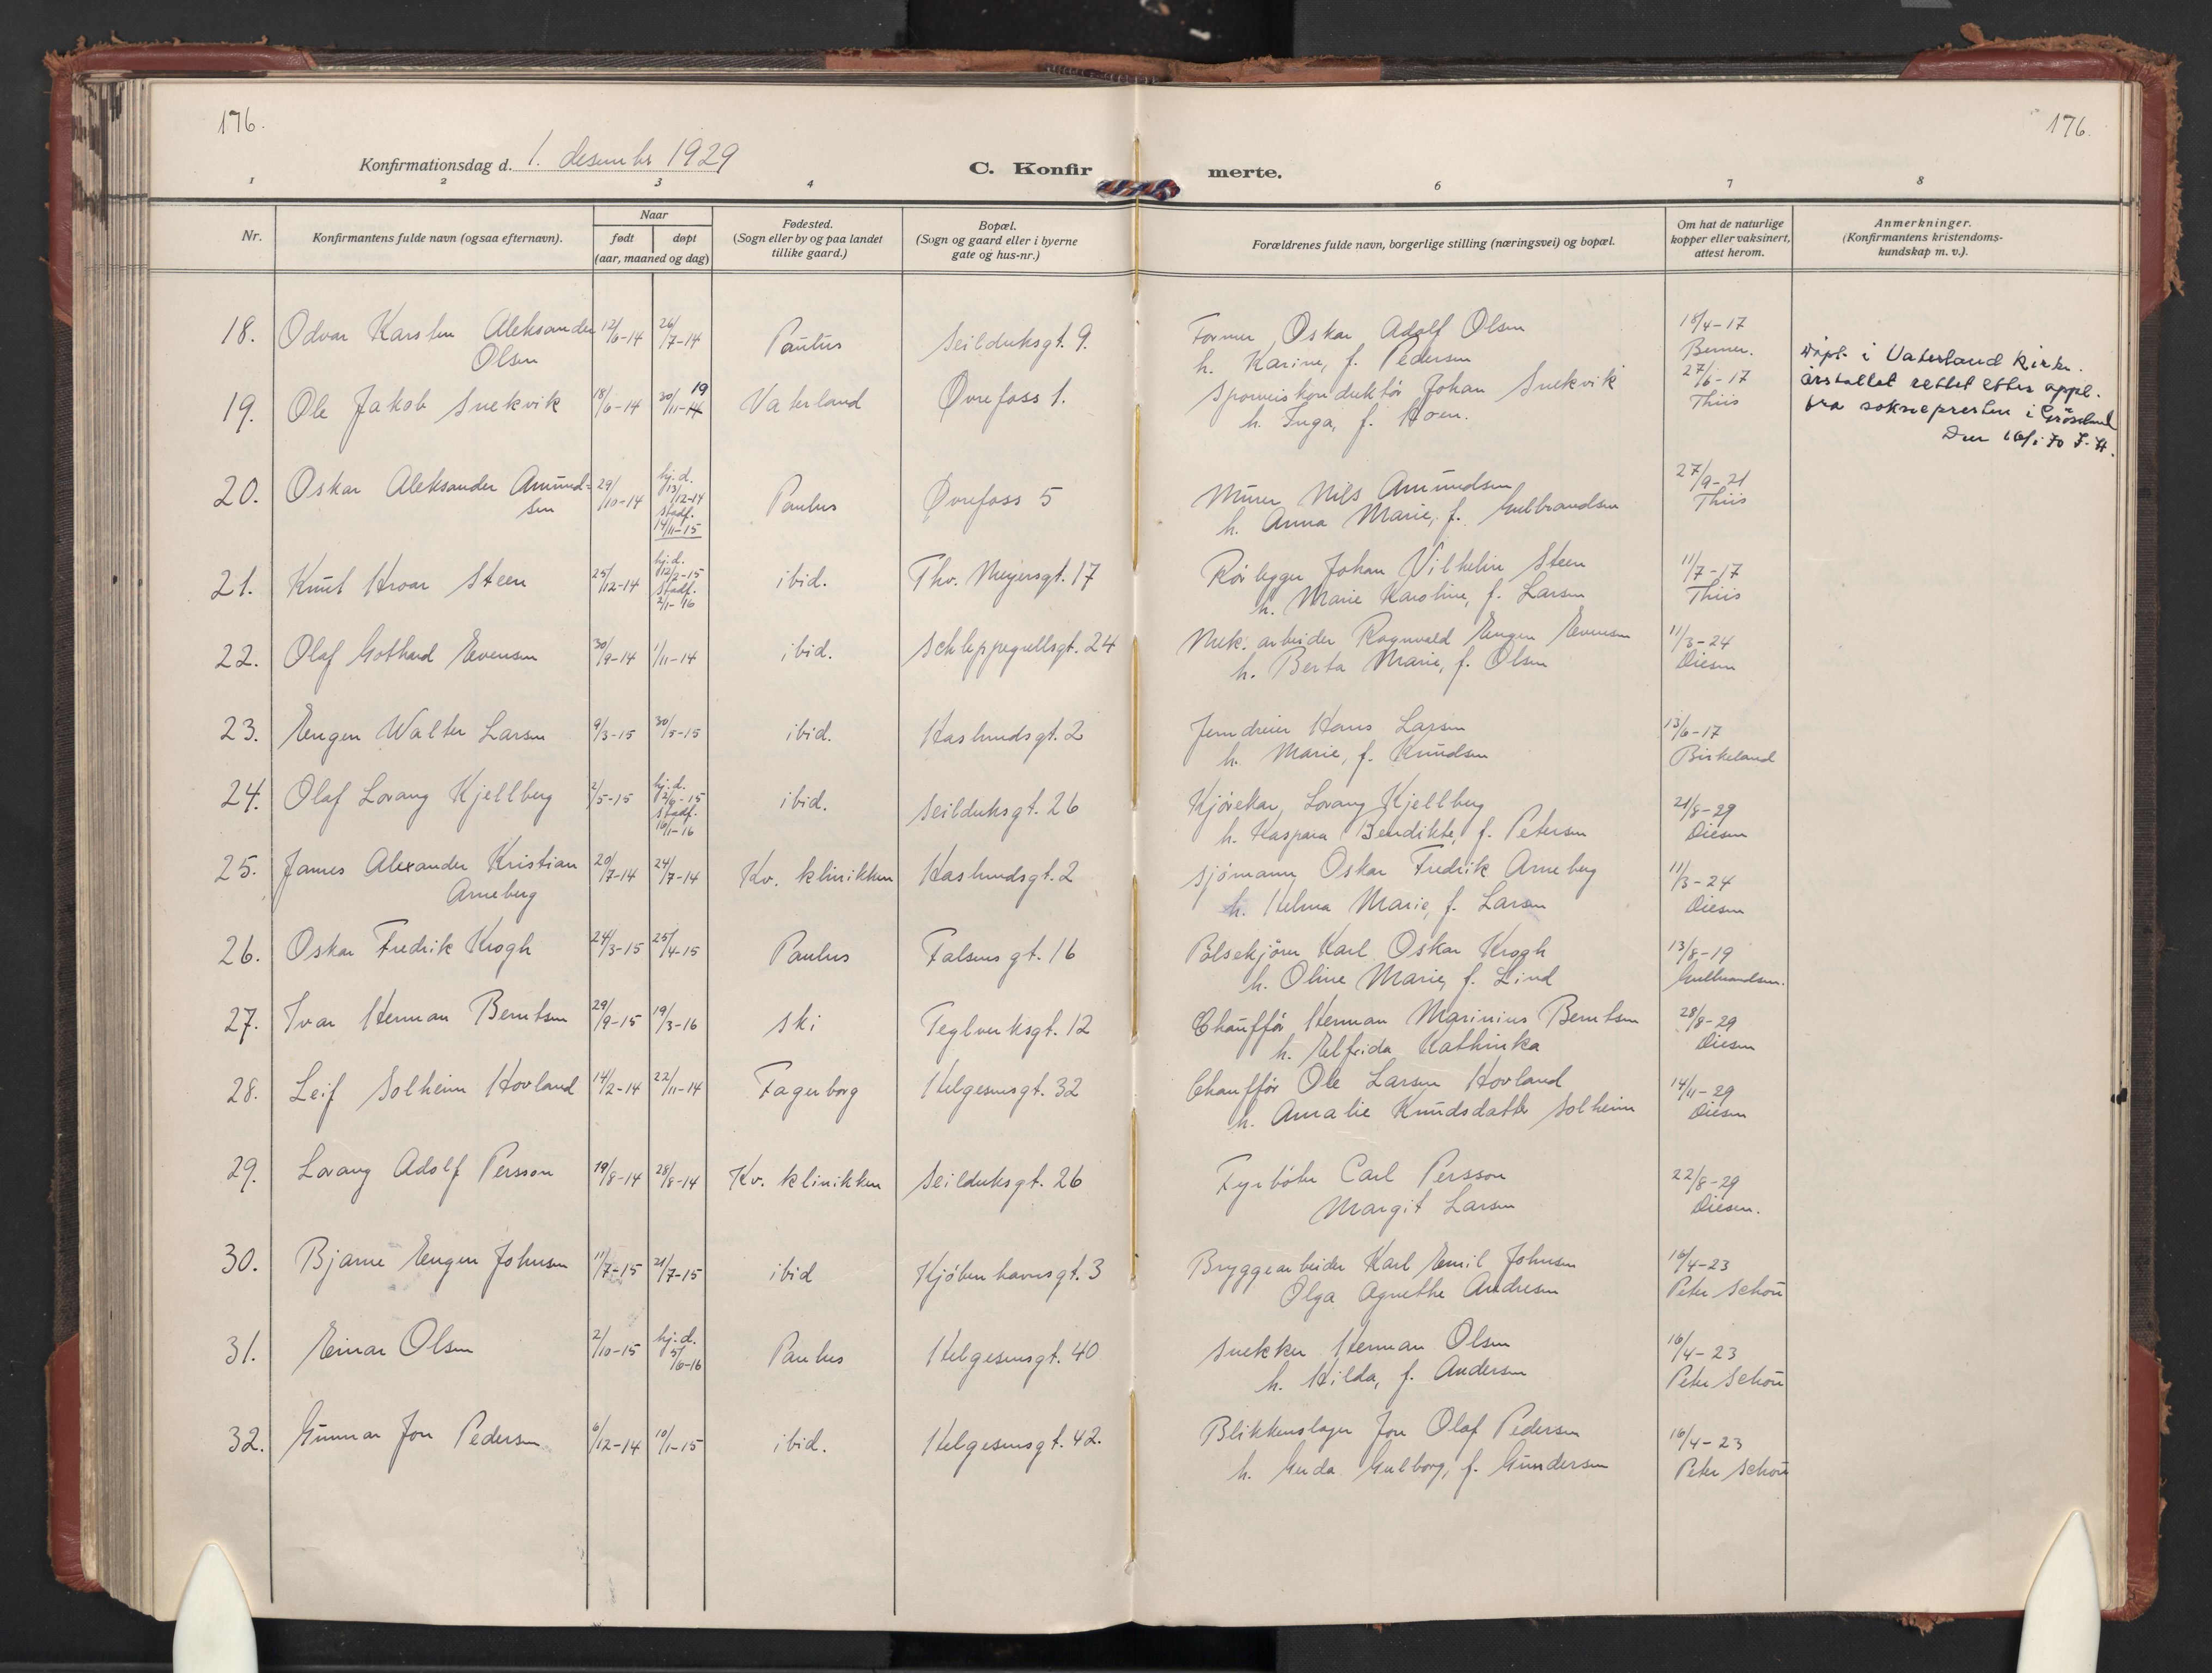 176.
176.
Konfirmationsdag d. 1. desember 1929
C. Konfir merte.
1 2 3 4 6 7 8
Nr.
Konfirmantens fulde navn (ogsaa efternavn).
Naar
født døpt
(aar, maaned og dag)
Fødested.
(Sogn eller by og paa landet
tillike gaard.)
Bopæl.
(Sogn og gaard eller i byerne
gate og hus-nr.)
Forældrenes fulde navn, borgerlige stilling (næringsvei) og bopæl.
Om hat de naturlige
kopper eller vaksinert,
attest herom.
Anmerkninger.
(Konfirmantens kristendoms-
kundskap m. v.).
18. Odvar Karsten Aleksander 12/6-14 26/7-14 Paulus Seilduksgt. 9. Former Oskar Adolf Olsen 18/4-17
Olsen h. Karine, f. Pedersen Berner.
19. Ole Jakob Snekvik 18/6-14 20/11-14 19 Vaterland Øvrefoss 1. Sporveiskonduktör Johan Snekvik 27/6-17
h. Inga, f. Hoen. Thiis
Döpt i Vaterland kirke.
årstallet rettet etter oppl.
fra soknepresten i Grösland
Den 16/1 70 J. H.
20. Oskar Aleksander Amund- 29/10-14 hj. d. 13/12-14 Paulus Øvrefoss 5 Murer Nils Amundsen 27/9-21
sen stadf. 14/11-15 h. Anna Marie, f. Gulbrandsen Thiis
21. Knut Hroar Steen 25/12-14 hj. d. 12/2-15 ibid. Thv. Meyersgt. 17 Rörlegger Johan Vilhelm Steen 11/7-17
stadf. 2/1-16 h. Marie Karoline, f. Larsen Thiis
22. Olaf Gothard Evensen 30/9-14 1/11-14 ibid. Schleppegrellsgt. 24 Mek. arbeider Ragnvald Eugen Evensen 11/3-24
h. Berta Marie, f. Olsen Diesen
23. Eugen Walter Larsen 9/3-15 30/5-15 ibid. Haslundsgt. 2 Jerndreier Hans Larsen 13/6-17
h. Marie, f. Knudsen Birkeland
24. Olaf Lorang Kjellberg 2/5-15 hj. d. 12/6-15 ibid. Seilduksgt. 26 Kjörekar Lorang Kjellberg 21/8-29
stadf. 16/1-16 h. Kaspara Bendikte, f. Petersen Diesen
25. James Alexander Kristian 20/7-14 24/7-14 Kv. klinikken Haslundsgt. 2 Sjömann Oskar Fredrik Arneberg 11/3-24
Arneberg h. Helma Marie, f. Larsen Diesen
26. Oskar Fredrik Krogh 24/3-15 25/4-15 Paulus Falsensgt. 16 Pölsekjören Karl Oskar Krogh 13/8-19
h. Oline Marie, f. Lind Gulbrandsen.
27. Ivar Herman Berntsen 29/9-15 19/3-16 Ski Teglverksgt. 12 Chaufför Herman Marinius Berntsen 28/8-29
h. Elfrida Kathinka Diesen
28. Leif Solheim Hovland 14/2-14 22/11-14 Fagerborg Helgesensgt. 32 Chaufför Ole Larsen Hovland 14/11-29
h. Amalie Knudsdatter Solheim Diesen
29. Lorang Adolf Persson 19/8-14 28/8-14 Kv. klinikken Seilduksgt. 26 Fyrböter Carl Persson 22/8-29
Margit Larsen Diesen.
30. Bjarne Eugen Johnsen 11/7-15 21/7-15 ibid Kjöbenhavnsgt. 3 Bryggearbeider Karl Emil Johnsen 16/4-23
Olga Agnethe Andresen Peter Schou
31. Einar Olsen 2/10-15 hj. d. 5/6-16 Paulus Helgesensgt. 40 Snekker Herman Olsen 16/4-23
h. Hilda, f. Andersen Peter Schou
32. Gunnar Jon Pedersen 6/12-14 10/1-15 ibid. Helgesensgt. 42. Blikkenslager Jon Olaf Pedersen 16/4-23
h. Gerda Gulborg, f. Gundersen Peter Schou